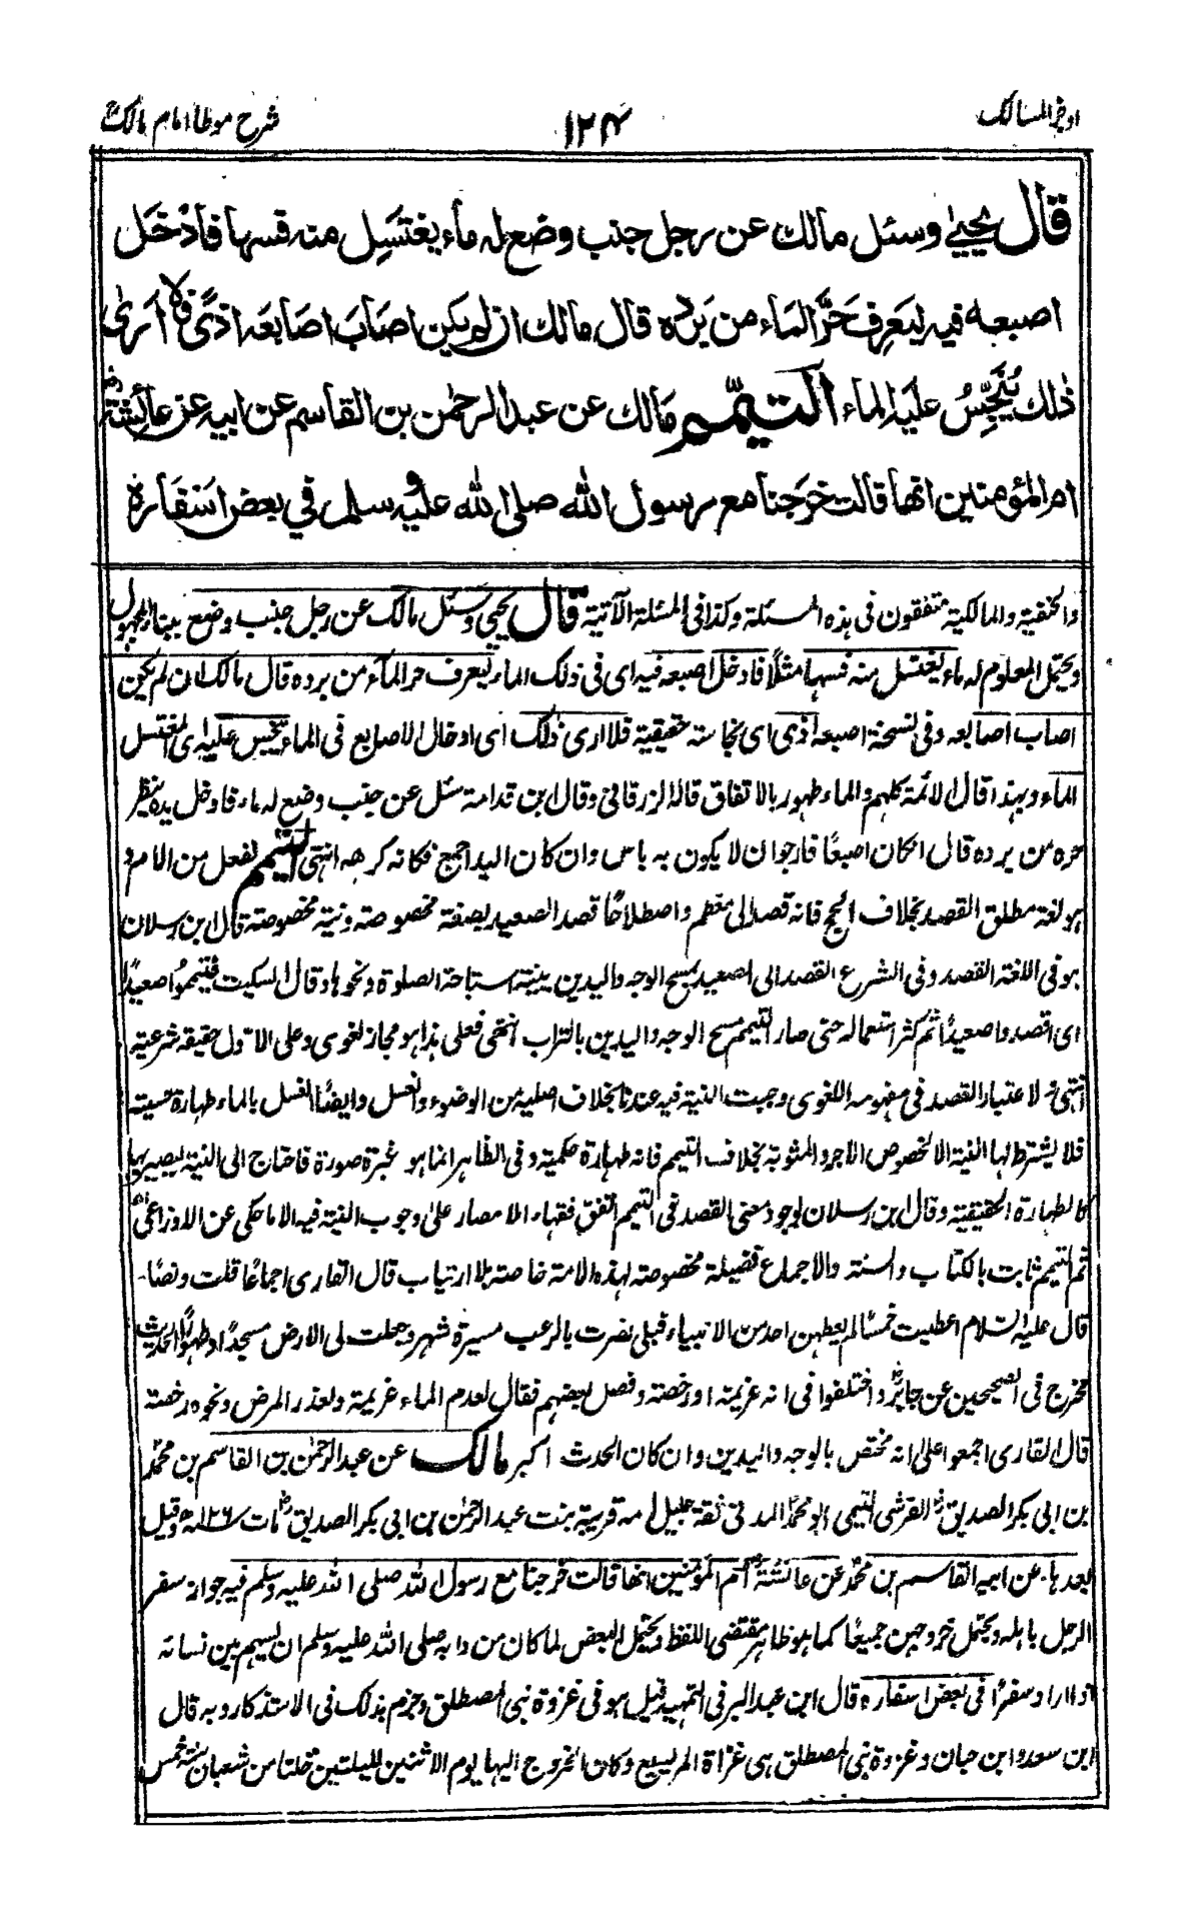 اوجز المسالك
١٢٤
شرح موطا امام مالك
قال يحيى وسئل مالك عن رجل جنب وضع له ماء يغتسل منه فسها فادخل
اصبعه فيه ليعرف حَرَّ الماء من بَرْدِه قال مالك ان لم يكن اصَابَ اصَابعَه اذىً فلا اَرىٰ
ذٰلك يُنَجِّسُ عليه الماء التيمّم مالك عن عبد الرحمٰن بن القاسم عن ابيه عن عائشةرض
ام المؤمنين انها قالت خرَجنا مع رسول الله صلى الله عليه وسلم في بعض اسْفَارِهٖ
والحنفية والمالكية متفقون فى هذه المسئلة وكذا فى المسئلة الآتية قال يحيي وسئل مالك عن رجل جنب وضع ببناء المجهول
ويحتمل المعلوم له ماء يغتسل منه فسها مثلاً فادخل اصبعه فيه اى فى ذلك الماء ليعرف حر الماء من برده قال مالك ان لم يكن
اصاب اصابعه وفى نسخة اصبعه اذى اى نجاسة حقيقية فلا ارى ذلك اى ادخال الاصابع فى الماء ينجس عليه اى المغتسل
الماء وبهذا قال الائمة كلهم والماء طهور بالاتفاق قاله الزرقانى وقال ابن قدامة سئل عن جنب وضع له ماء فادخل يده ينظر
حره من برده قال ان كان اصبعًا فارجو ان لا يكون به باس وان كان اليد اجمع فكانه كرهه انتهى التيمم تفعل من الام و
هو لغة مطلق القصد بخلاف الحج فانه قصد الى معظم واصطلاحًا قصد الصعيد بصفة مخصوصة ونية مخصوصة قال ابن رسلان
هو فى اللغة القصد وفى الشرع القصد الى الصعيد لمسح الوجه واليدين بنية استباحة الصلوة ونحوها وقال السكيت فتيمموا صعيدًا
اى اقصدوا صعيدًا ثم كثر استعماله حتى صار التيمم مسح الوجه واليدين بالتراب انتهى فعلى هذا هو مجاز لغوى وعلى الاول حقيقة شرعية
انتهى ولاعتبار القصد فى مفهومه اللغوى وجبت النية فيه عندنا بخلاف اصليه من الوضوء والغسل وايضًا الغسل بالماء طهارة حسية
فلا يشترط لها النية الا لخصوص الاجر والمثوبة بخلاف التيمم فانه طهارة حكمية وفى الظاهر انما هو غبرة صورة فاحتاج الى النية ليصير بها
كالطهارة الحقيقية وقال ابن رسلان لوجود معنى القصد فى التيمم اتفق فقهاء الامصار على وجوب النية فيه الا ما حكى عن الاوزاعى
ثم التيمم ثابت بالكتاب والسنة والاجماع فضيلة مخصوصة لهذه الامة خاصة بلا ارتياب قال القارى اجماعًا قلت ونصًا
قال عليه السلام اعطيت خمسًا لم يعطهن احد من الانبياء قبلى نصرت بالرعب مسيرة شهر وجعلت لى الارض مسجدًا وطهورًا الحديث
مخرج فى الصحيحين عن جابر واختلفوا فى انه عزيمة او رخصة وفصل بعضهم فقال لعدم الماء عزيمة ولعذر المرض ونحوه رخصة
قال القارى اجمعوا على انه مختص بالوجه واليدين وان كان الحدث اكبر مالك عن عبد الرحمٰن بن القاسم بن محمد
بن ابى بكر الصديق القرشى التيمى ابو محمد المدنى ثقة جليل امه قريبة بنت عبد الرحمٰن بن ابى بكر الصديق مات ١٢٦ھ وقيل
بعدها عن ابيه القاسم بن محمد عن عائشة ام المؤمنين انها قالت خرجنا مع رسول الله صلى الله عليه وسلم فيه جواز سفر
الرجل باهله ويحتمل خروجهن جميعًا كما هو ظاهر مقتضى اللفظ ويحتمل البعض لما كان من دابه صلى الله عليه وسلم ان يسهم بين نسائه
اذا اراد سفرًا فى بعض اسفاره قال ابن عبد البر فى التمهيد قيل هو فى غزوة بنى المصطلق وجزم بذلك فى الاستذكار وبه قال
ابن سعد وابن حبان وغزوة بنى المصطلق هى غزاة المريسيع وكان الخروج اليها يوم الاثنين لليلتين خلتا من شعبان سنة خمس